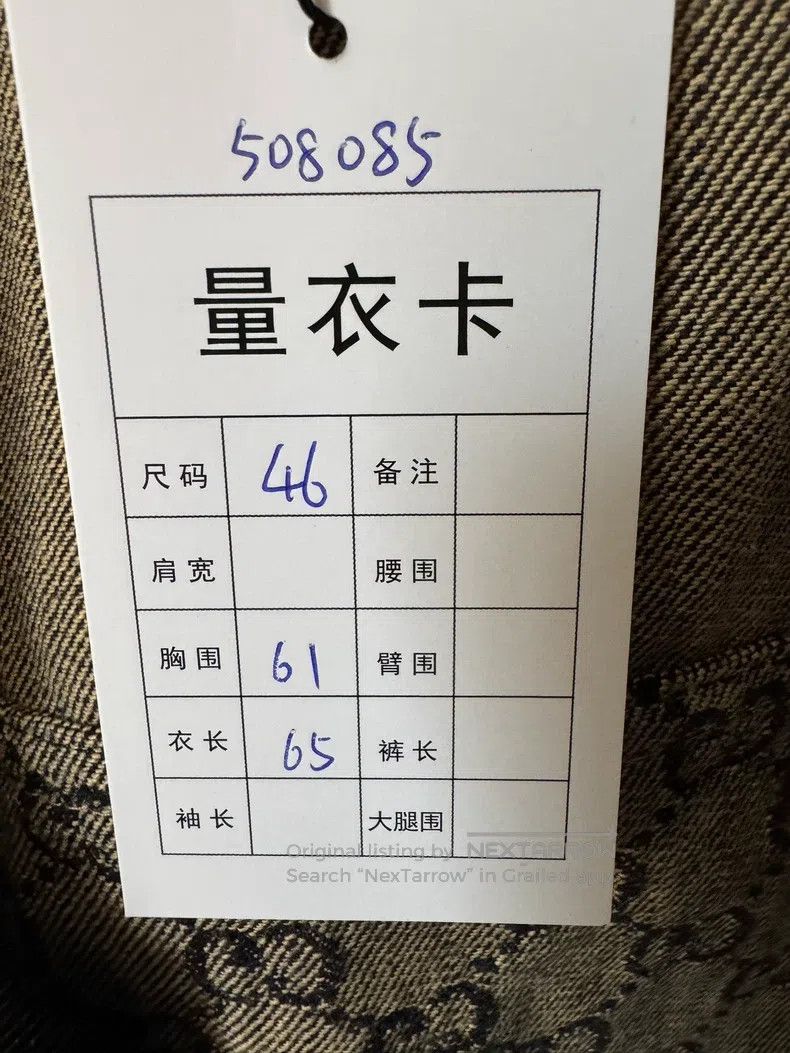 508085
量衣卡
尺码 46 备注
肩宽 腰围
胸围 61 臂围
衣长 65 裤长
袖长 大腿围
Original listing by NEXTARROW
Search "NexTarrow" in Grailed app